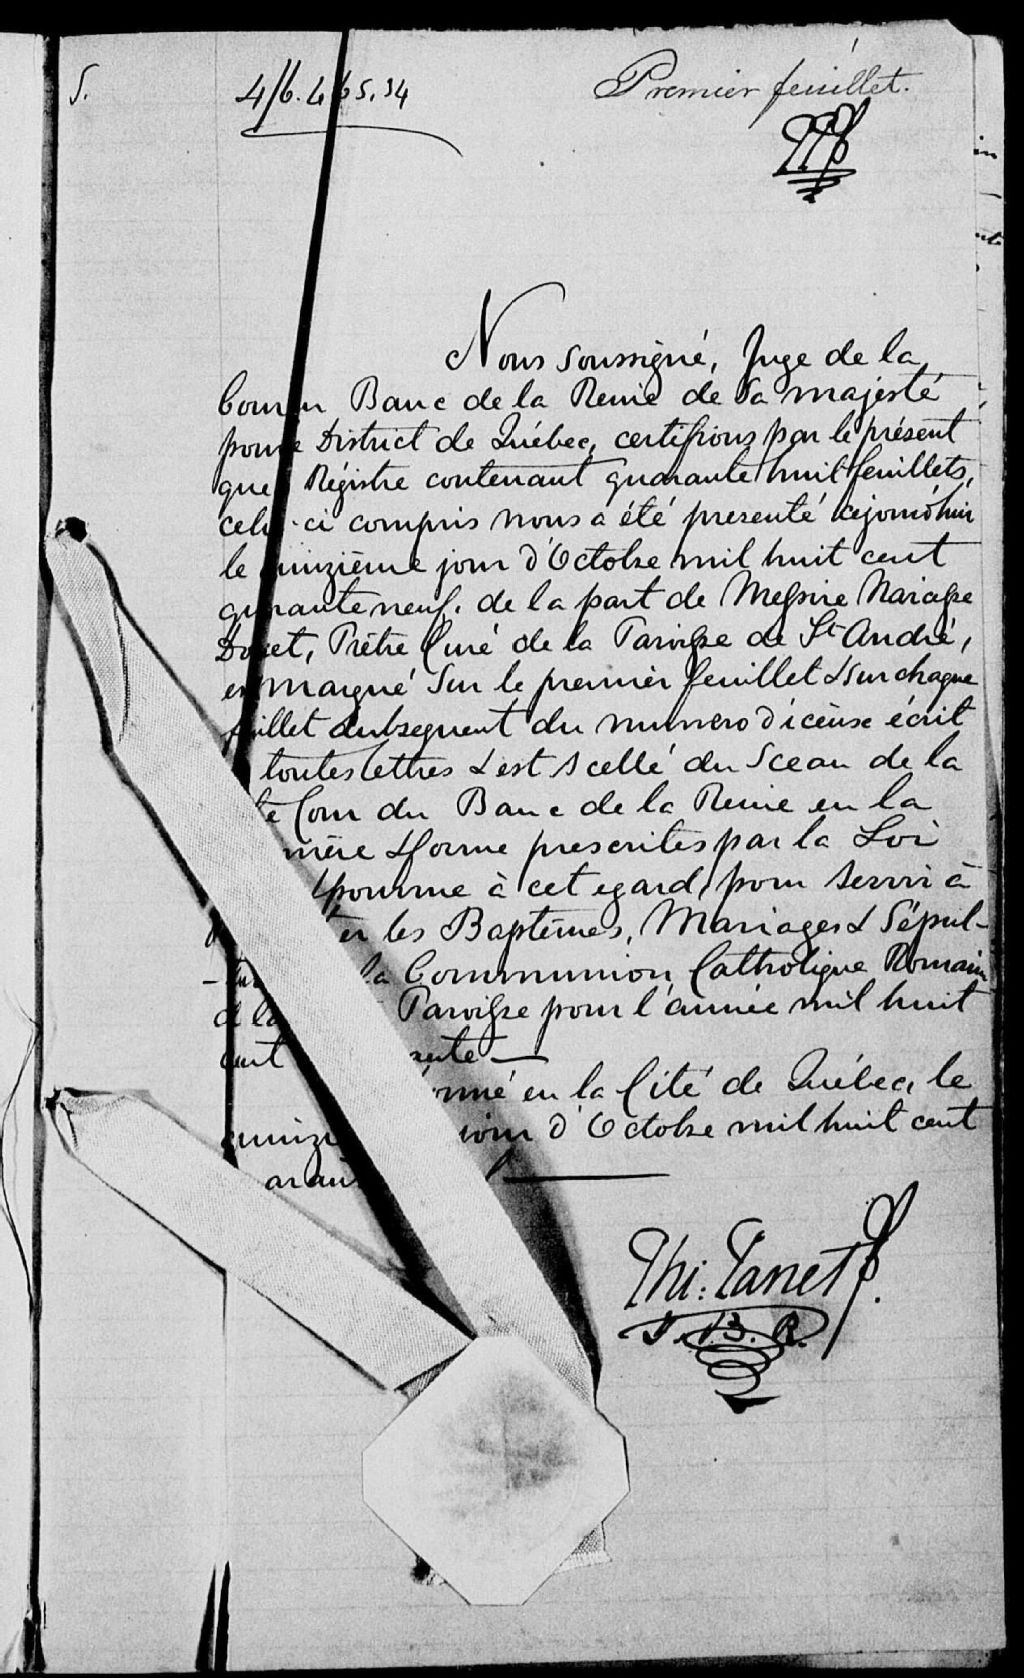 S.
4/6. 465. 34
Premier feuillet.
Nous soussigné, Juge de la
Cour Banc de la Reine de Sa majesté
pour District de Québec, certifions par le présent
que Régistre contenant quarante huit feuillets,
celui-ci compris nous a été presenté
le quinzième jour d'Octobre mil huit cent
quarante neuf. de la part de Messire Narcisse
Doucet, Prêtre Curé de la Paroisse de St André,
en margué sur le premier feuillet & sur chaque
feuillet subsequent du numero d'icéuse écrit
toutes lettres & est scellé du Sceau de la
te Cour du Banc de la Reine en la
mère & forme prescrites par la Loi
pourvue à cet egard, pour servir à
er les Baptêmes, Mariages & Sépul-
- la Communion Catholique Romain
de la Paroisse pour l'année mil huit
cent ante —
onné en la Cité de Québec, le
quinzi jour d'Octobre mil huit cent
aran
Thi: Panet
J. B. R.